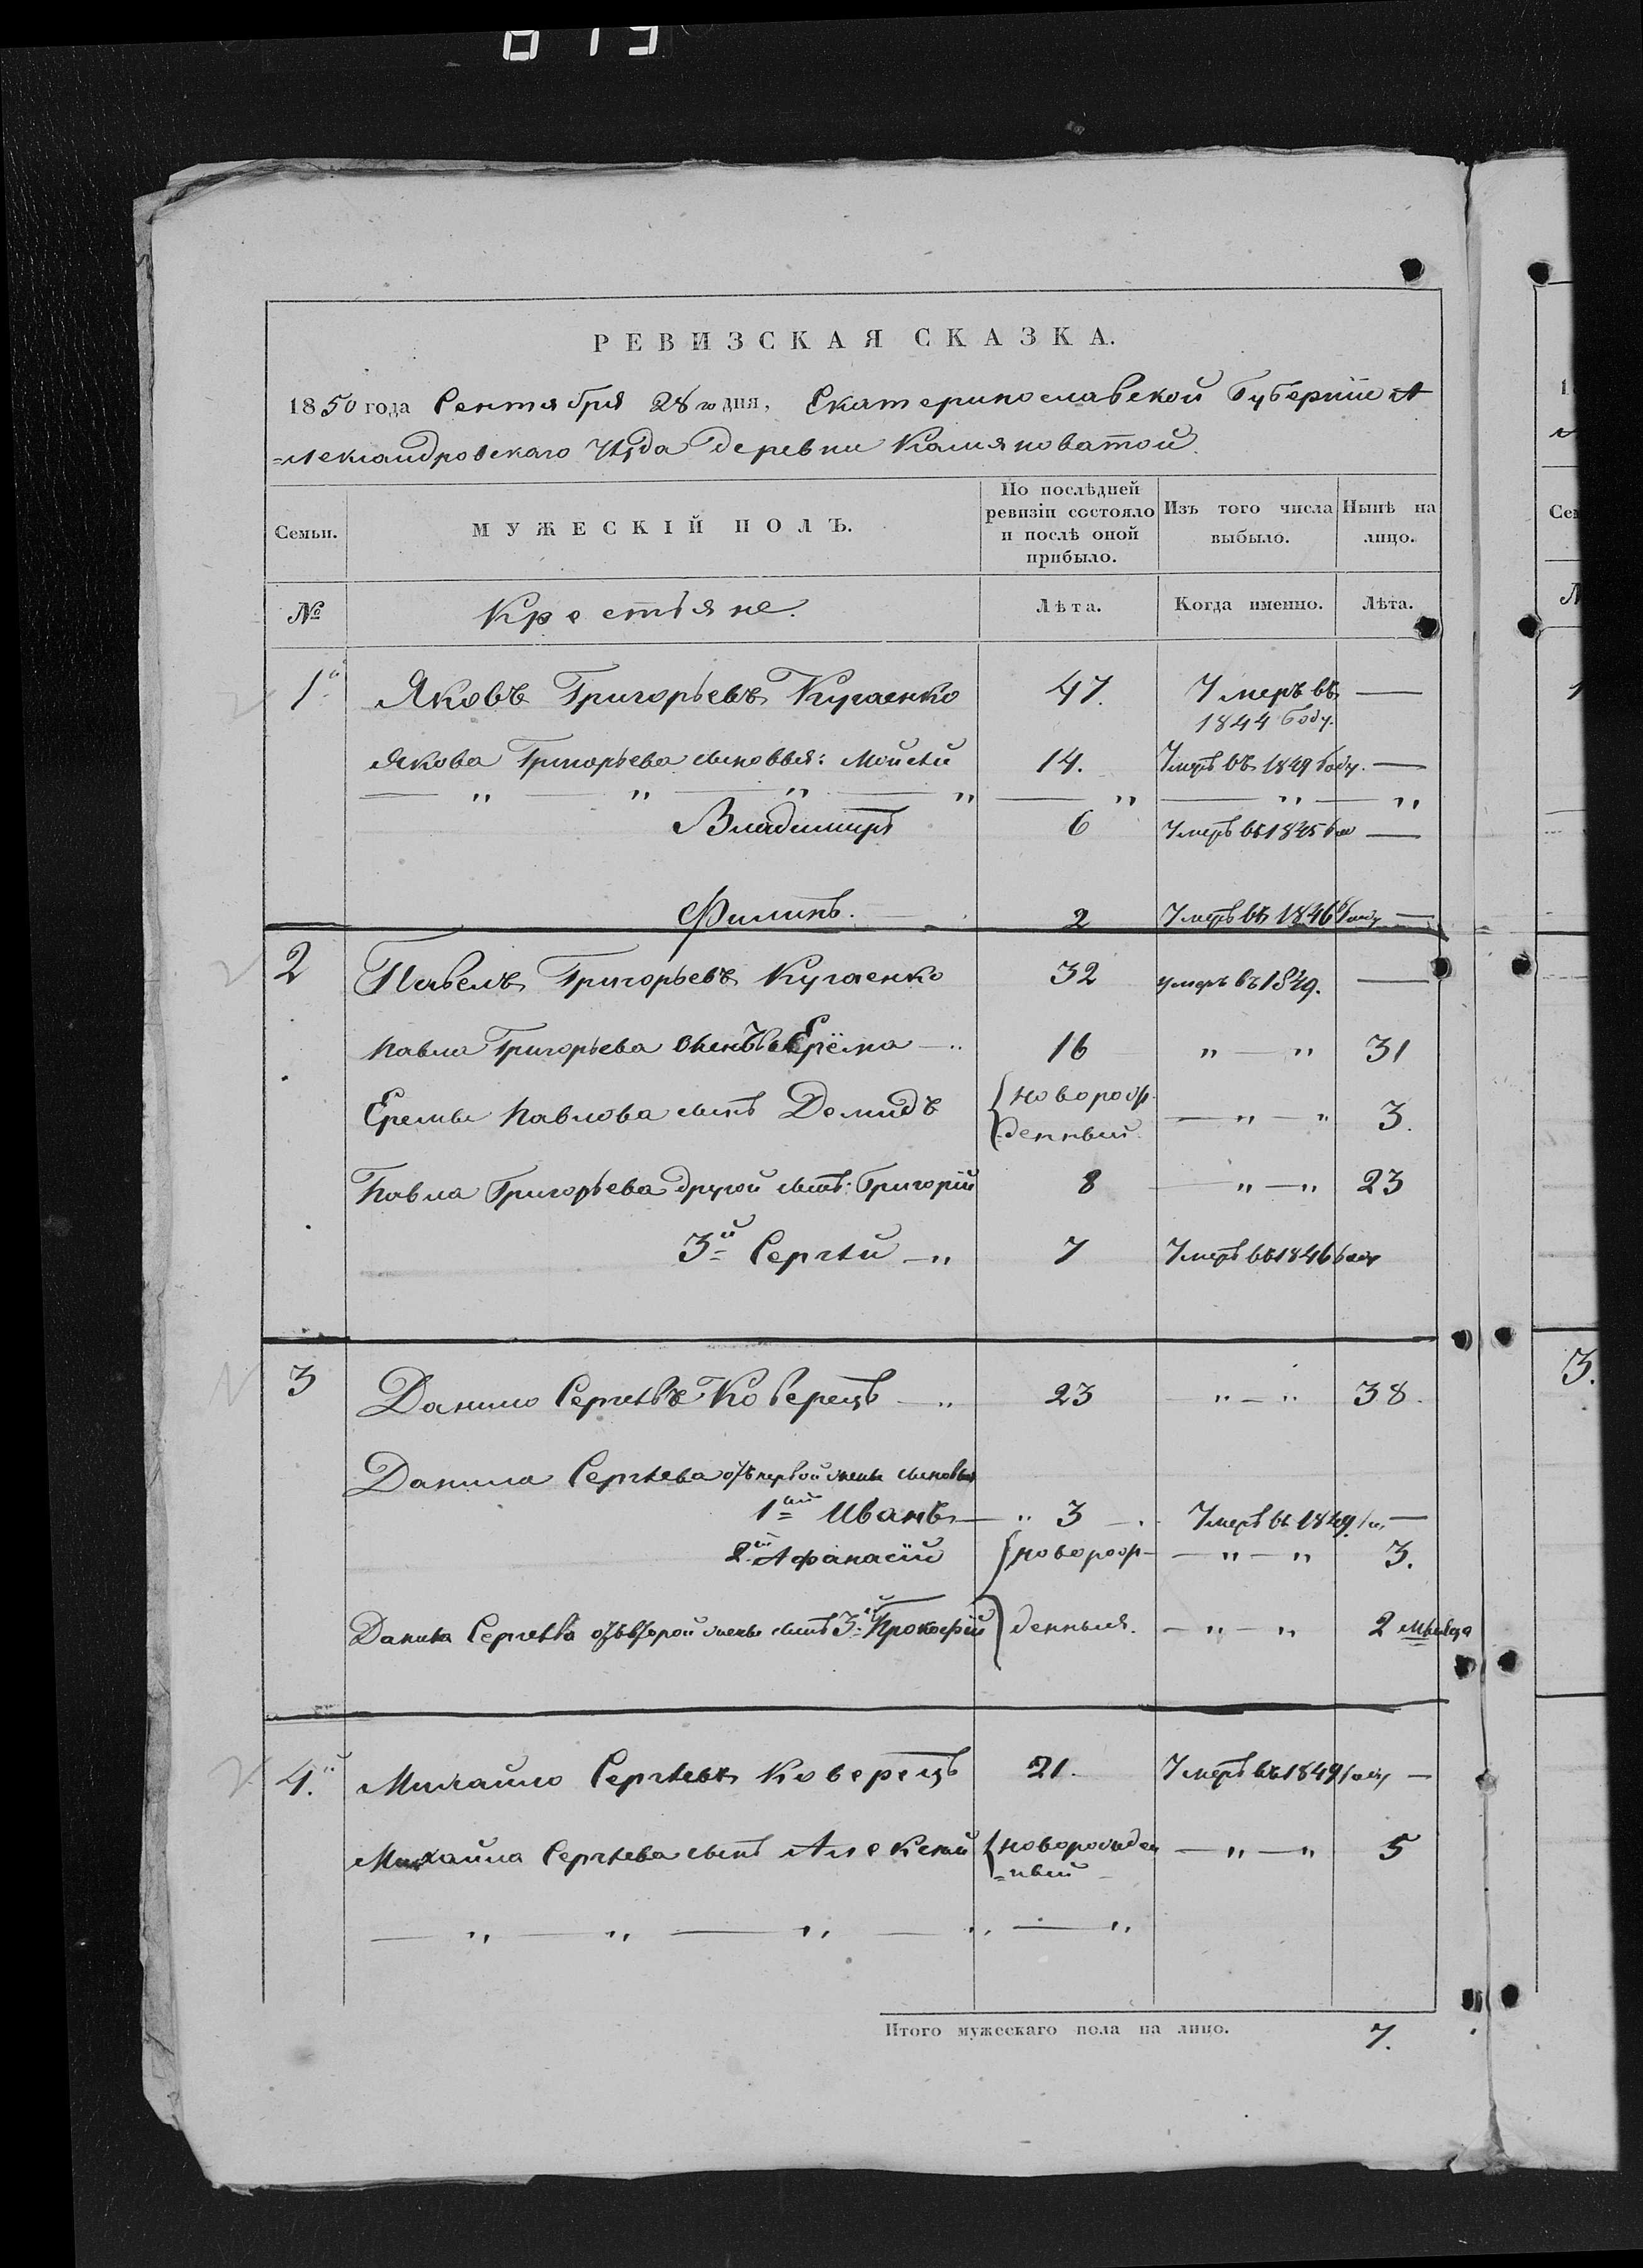 819
РЕВИЗСКАЯ СКАЗКА.
1850 года Сентября 28 го дня, Екатеринославской Губернiи А
=лександровскаго Уѣзда деревни Камяноватой.
Семьи. МУЖЕСКIЙ ПОЛЪ. По послѣдней ревизiи состояло и послѣ оной прибыло. Изъ того числа выбыло. Нынѣ на лицо.
№ Крестьяне. Лѣта. Когда именно. Лѣта.
1й Яковъ Григорьевъ Кугаенко 47. Умеръ въ —
1844 году.
Якова Григорьева сыновья: Мойсѣй 14. Умеръ въ 1849 году. —
— " — " — " — " — " — " — "
Владимиръ 6 Умеръ въ 1845 го —
Филипъ. 2 Умеръ въ 1846 году —
2 Павелъ Григорьевъ Кугаенко 32 умеръ въ 1849. —
Павла Григорьева сынъ Ерёма — " 16 " — " 31
Еремы Павлова сынъ Демидъ {новорож-
{денный. — " — " 3.
Павла Григорьева другой сынъ: Григорiй 8 — " — " 23
3й Сергѣй — " 7 Умеръ въ 1846 году
3 Данило Сергѣевъ Коверецъ — " 23 " — " 38.
Данила Сергѣева отъ первой жены сыновья
1ый Иванъ — " 3 — Умеръ въ 1849 го —
2й Афанасiй {новорож- — " — " 3.
Данила Сергѣева отъ второй жены сынъ 3й Прокофiй } денныя. — " — " 2 мѣсяца
4й. Михайло Сергѣевъ Коверецъ 21. Умеръ въ 1849 году —
Михайла Сергѣева сынъ Алексѣй {новорожден
=ный — " — " 5
— " — " — " — " — "
Итого мужескаго пола на лицо. 7.